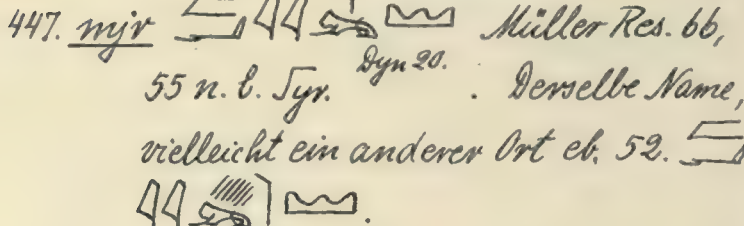 447. mjr Müller Res. 66,
55 n. b. Syr. Dyn 20. . Derselbe Name,
vielleicht ein anderer Ort eb. 52.
.